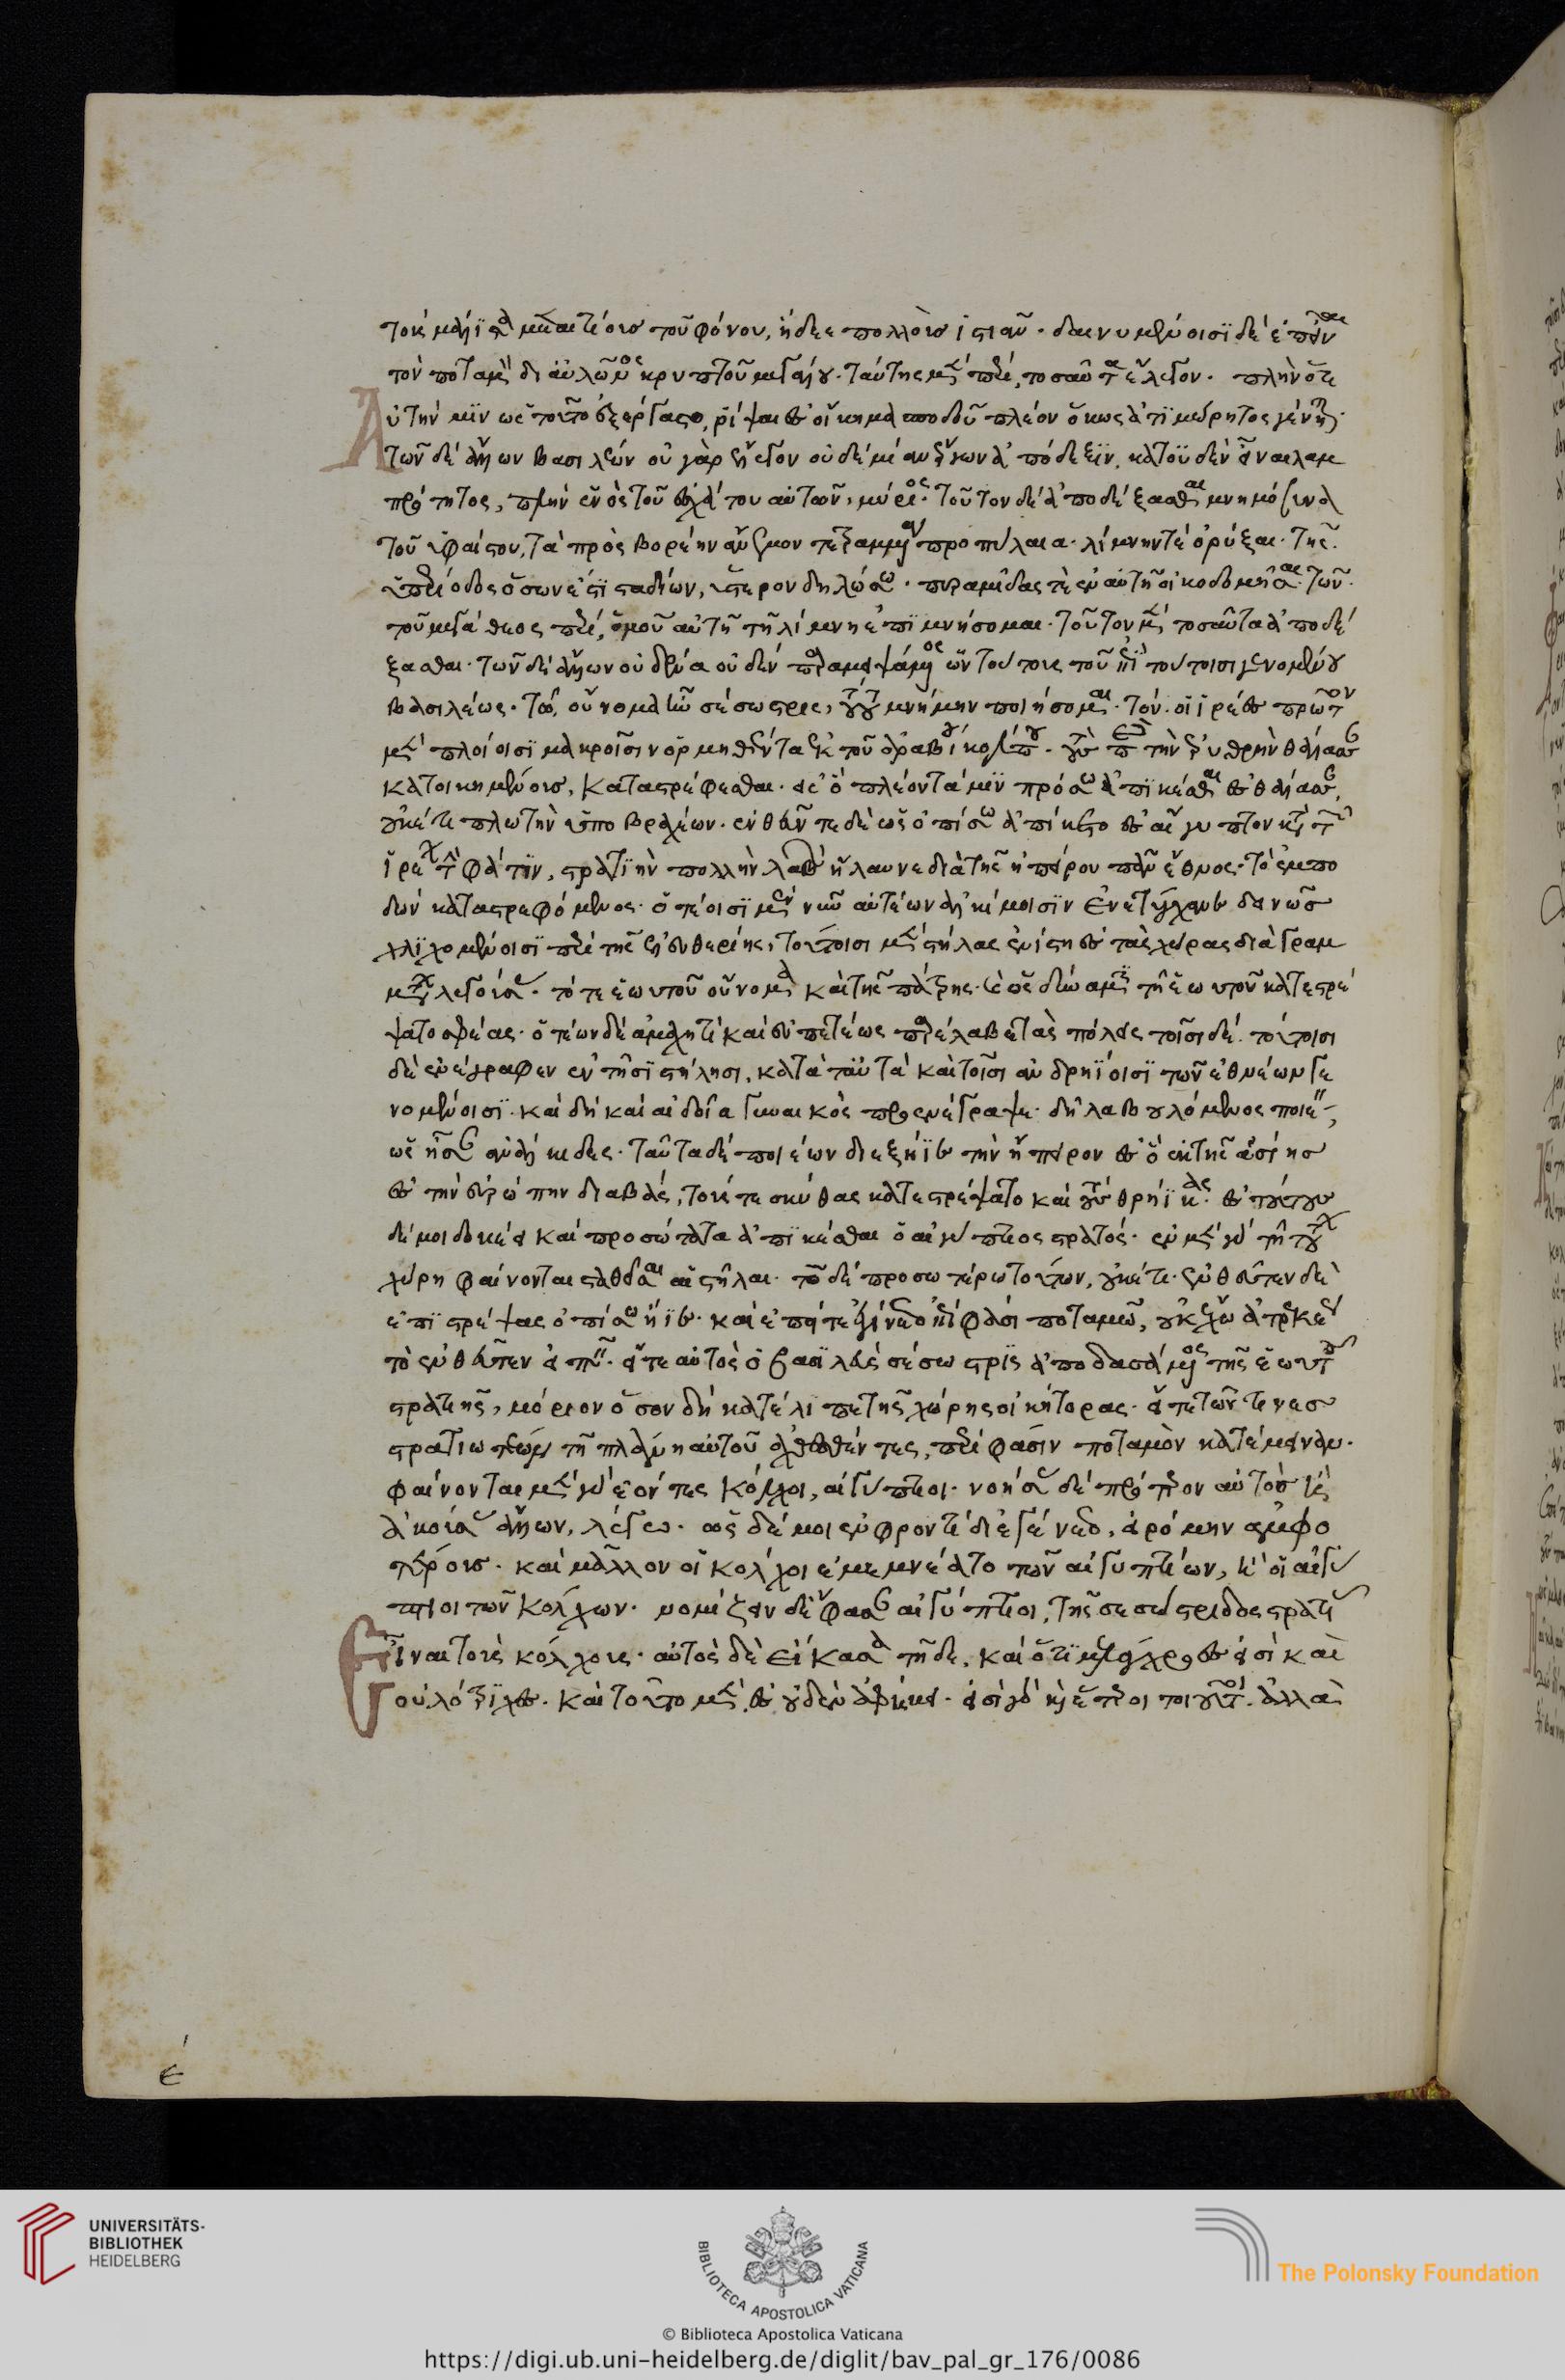 τοὺς μάλιστα μεταιτίους τοῦ φόνου ἤδεε πολλοὺς ἱστᾶν. δαινυμένοισι δὲ ἐπεῖναι
τὸν ποταμὸν δι' αὐλῶνος κρυπτοῦ μεγάλου. ταύτης μὲν πέρι τοσαῦτα ἔλεγον. πλὴν ὅτι
αὐτήν μιν ὡς τοῦτο ἐξέργαστο, ῥίψαι ἐς οἴκημα σποδοῦ πλέον ὅκως ἀτιμώρητος γένηται.
τῶν δὲ ἄλλων βασιλέων οὐ γὰρ ἔλεγον οὐδεμίαν ἔργων ἀπόδεξιν. κατ' οὐδὲν εἶναι λαμ
πρότητος, πλὴν ἑνὸς τοῦ ἐσχάτου αὐτῶν, μύριος. τοῦτον δὲ ἀποδέξασθαι μνημόσυνα
τοῦ ἡφαίστου, τὰ πρὸς βορέην ἄνεμον τετραμμένον προπύλαια. λίμνην τε ὀρύξαι. τῆς
ἡ περίοδος ὅσων ἐστὶ σταδίων, ὕστερον δηλώσω. πυραμίδας τε ἐν αὐτῇ οἰκοδομῆσαι. τῶν
τοῦ μεγάθεος πέρι, ὁμοῦ αὐτῇ τῇ λίμνῃ ἐπιμνήσομαι. τοῦτον μὲν τοσαῦτα ἀποδέ
ξασθαι. τῶν δὲ ἄλλων οὐδένα οὐδέν παραμειψάμενος ὦν τούτους τοῦ ἐπὶ τούτοισι γενομένου
βασιλέως. τῷ οὔνομα ἦν σέσωστρις, τούτου μνήμην ποιήσομαι. τὸν οἱ ἱρέες πρῶτον
μὲν πλοίοισι μακροῖσιν ὁρμηθέντα ἐκ τοῦ ἀραβίου κόλπου. τοὺς παρὰ τὴν ἐρυθρὴν θάλασσαν
κατοικημένους, καταστρέφεσθαι. ἐς ὃ πλέοντά μιν πρόσω ἀπικέσθαι ἐς θάλασσαν,
οὐκέτι πλωτὴν ὑπὸ βραχέων. ἐνθεῦτεν δὲ ὡς ὀπίσω ἀπίκετο ἐς αἴγυπτον κατὰ τῶν
ἱρέων τὴν φάτιν, στρατιὴν πολλὴν λαβὼν ἤλαυνε διὰ τῆς ἠπείρου πᾶν ἔθνος. τὸ ἐμπο
δὼν καταστρεφόμενος. ὁτέοισι μέν νυν αὐτέων ἀλκίμοισιν ἐνετύγχανε δεινῶς
γλιχομένοισι πέρι τῆς ἐλευθερίης, τούτοισι μὲν στήλας ἐνίστη ἐς τὰς χώρας διὰ γραμ
μάτων λεγούσας. τό τε ἑωυτοῦ οὔνομα καὶ τῆς πάτρης. καὶ ὡς δυνάμει τῇ ἑωυτοῦ κατεστρέ
ψατο σφέας. ὁτέων δὲ ἀμαχητὶ καὶ εὐπετέως παρέλαβε τὰς πόλεις τοῖσι δέ. τούτοισι
δὲ ἐνέγραφεν ἐν τῇσι στήλῃσι, κατὰ ταὐτὰ καὶ τοῖσι ἀνδρηίοισι τῶν ἐθνέων γε
νομένοισι. καὶ δὴ καὶ αἰδοῖα γυναικὸς προσενέγραφε. δῆλα βουλόμενος ποιέειν,
ὡς ἦσαν ἀνάλκιδες. ταῦτα δὲ ποιέων διεξήιε τὴν ἤπειρον ἐς ὃ ἐκ τῆς ἀσίης
ἐς τὴν εὐρώπην διαβὰς, τούς τε σκύθας κατεστρέψατο καὶ τοὺς θρήικας. ἐς τούτους
δέ μοι δοκέει καὶ προσώτατα ἀπικέσθαι ὁ αἰγύπτιος στρατός. ἐν μὲν γὰρ τῇ τούτων
χώρῃ φαίνονται σταθεῖσαι αἱ στῆλαι. τὸ δὲ προσωτέρω τούτων, οὐκέτι. ἐνθεῦτεν δὲ
ἐπιστρέψας ὀπίσω ἤιε. καὶ ἐπείτε ἐγίνετο ἐπὶ φάσι ποταμῷ, οὐκ ἔχω ἀτρεκέως
τὸ ἐνθεῦτεν εἰπεῖν. εἴτε αὐτὸς ὁ βασιλεὺς σέσωστρις ἀποδασάμενος τῆς ἑωυτοῦ
στρατιῆς, μόριον ὅσον δὴ κατέλιπε τῆς χώρης οἰκήτορας. εἴτε τῶν τινες
στρατιωτέων τῇ πλάνῃ αὐτοῦ ἀχθεσθέντες, περὶ φᾶσιν ποταμὸν κατέμειναν.
φαίνονται μὲν γὰρ ἐόντες κόλχοι, αἰγύπτιοι. νοήσας δὲ πρότερον αὐτὸς ἢ
ἀκούσας ἄλλων, λέγω. ὡς δέ μοι ἐν φροντίδι ἐγένετο, εἰρόμην ἀμφο
τέρους. καὶ μᾶλλον οἱ κόλχοι ἐμεμνέατο τῶν αἰγυπτίων, ἢ οἱ αἰγύ
πτιοι τῶν κόλχων. νομίζειν δὲ ἔφασαν αἰγύπτιοι, τῆς σεσώστριδος στρατιῆς
εἶναι τοὺς κόλχους. αὐτὸς δὲ εἴκασα τῇδε. καὶ ὅτι μελάγχροες εἰσὶ καὶ
οὐλότριχες. καὶ τοῦτο μὲν ἐς οὐδὲν ἀνήκει. εἰσὶ γὰρ καὶ ἕτεροι τοιοῦτοι. ἀλλὰ
έ
UNIVERSITÄTS-
BIBLIOTHEK
HEIDELBERG
BIBLIOTECA APOSTOLICA VATICANA
© Biblioteca Apostolica Vaticana
The Polonsky Foundation
https://digi.ub.uni-heidelberg.de/diglit/bav_pal_gr_176/0086